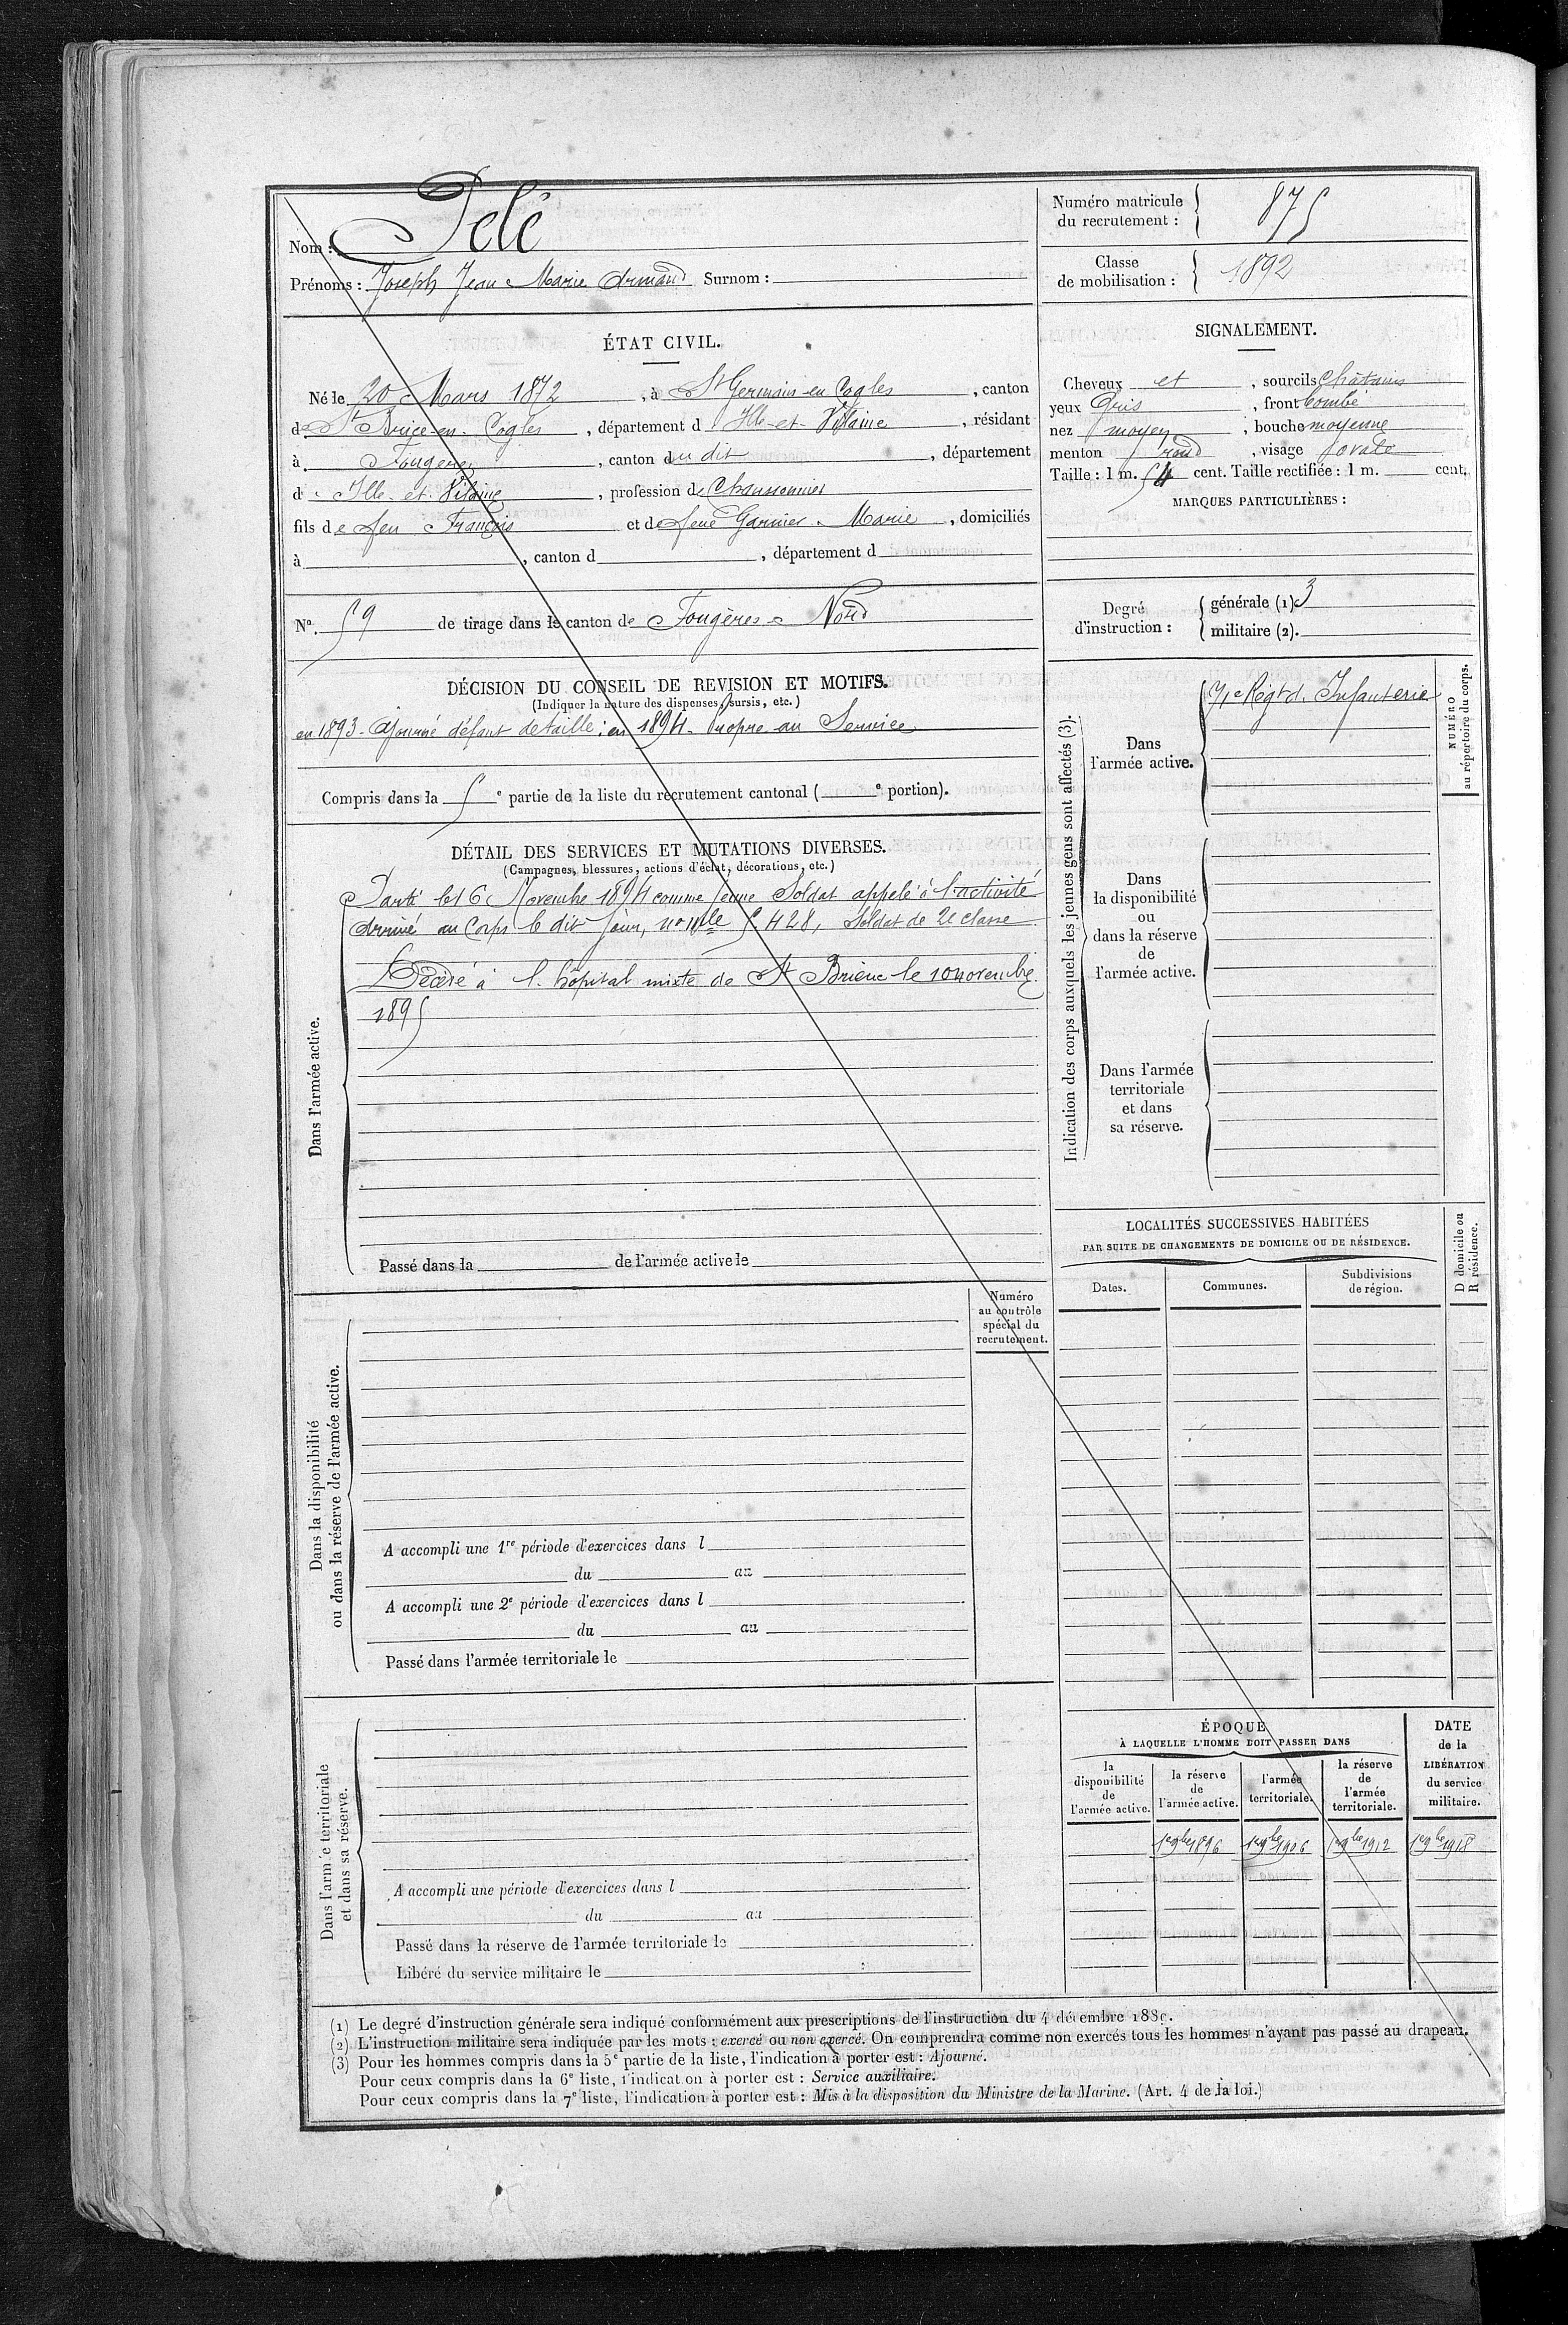 Nom : Pelé
Prénoms : Joseph Jean Marie Armand Surnom :
Numéro matricule du recrutement : 875
Classe de mobilisation : 1892
ÉTAT CIVIL.
Né le 20 Mars 1872, à St Germain-en Cogles, canton
de St Brice-en-Cogles, département d Ille-et-Vilaine, résidant
à Fougères, canton du dit, département
d Ille-et-Vilaine, profession de Chaussonnier
fils de feu François et de feue Garnier Marie, domiciliés
à , canton d , département d
SIGNALEMENT.
Cheveux et , sourcils châtains
yeux Gris , front bombé
nez moyen , bouche moyenne
menton rond , visage ovale
Taille : 1 m. 54 cent. Taille rectifiée : 1 m. cent.
MARQUES PARTICULIÈRES :
N°. 59 de tirage dans le canton de Fougères-Nord
Degré d'instruction : générale (1). 3
militaire (2).
DÉCISION DU CONSEIL DE REVISION ET MOTIFS.
(Indiquer la nature des dispenses, sursis, etc.)
en 1893- Ajourné défaut de taille ; en 1894- Propre au Service
Compris dans la 5 e partie de la liste du recrutement cantonal ( e portion).
DÉTAIL DES SERVICES ET MUTATIONS DIVERSES.
(Campagnes, blessures, actions d'éclat, décorations, etc.)
Dans l'armée active.
Parti le 16 Novembre 1894 comme jeune Soldat appelé à l'activité
Arrivé au Corps le dit jour, no mle 5.428, Soldat de 2e classe
Décédé à l'hôpital mixte de St Brieuc le 10 novembre
1895
Passé dans la de l'armée active le
Indication des corps auxquels les jeunes gens sont affectés (3).
NUMÉRO
au répertoire du corps.
Dans
l'armée active.
71e Régt d'Infanterie
Dans
la disponibilité
ou
dans la réserve
de
l'armée active.
Dans l'armée
territoriale
et dans
sa réserve.
LOCALITÉS SUCCESSIVES HABITÉES
PAR SUITE DE CHANGEMENTS DE DOMICILE OU DE RÉSIDENCE.
Dates.
Communes.
Subdivisions
de région.
D domicile ou
R résidence.
Numéro
au contrôle
spécial du
recrutement.
Dans la disponibilité
ou dans la réserve de l'armée active.
A accompli une 1re période d'exercices dans l
du au
A accompli une 2e période d'exercices dans l
du au
Passé dans l'armée territoriale le
Dans l'armée territoriale
et dans sa réserve.
A accompli une période d'exercices dans l
du au
Passé dans la réserve de l'armée territoriale le
Libéré du service militaire le
ÉPOQUE
À LAQUELLE L'HOMME DOIT PASSER DANS
la
disponibilité
de
l'armée active.
la réserve
de
l'armée active.
l'armée
territoriale.
la réserve
de
l'armée
territoriale.
DATE
de la
LIBÉRATION
du service
militaire.
1er 9bre 1896 1er 9bre 1906 1er 9bre 1912 1er 9bre 1918
(1) Le degré d'instruction générale sera indiqué conformément aux prescriptions de l'instruction du 4 décembre 1889.
(2) L'instruction militaire sera indiquée par les mots : exercé ou non exercé. On comprendra comme non exercés tous les hommes n'ayant pas passé au drapeau.
(3) Pour les hommes compris dans la 5e partie de la liste, l'indication à porter est : Ajourné.
Pour ceux compris dans la 6e liste, l'indication à porter est : Service auxiliaire.
Pour ceux compris dans la 7e liste, l'indication à porter est : Mis à la disposition du Ministre de la Marine. (Art. 4 de la loi.)